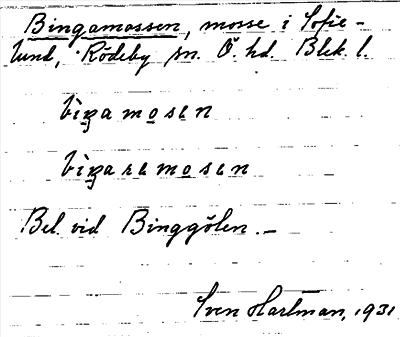 Bingamossen, mosse i Sofie-
lund, Rödeby sn. Ö. hd. Blek. l.
bìŋamosen
bìŋaremosen
Bel. vid Binggölen. –
Sven Hartman, 1931